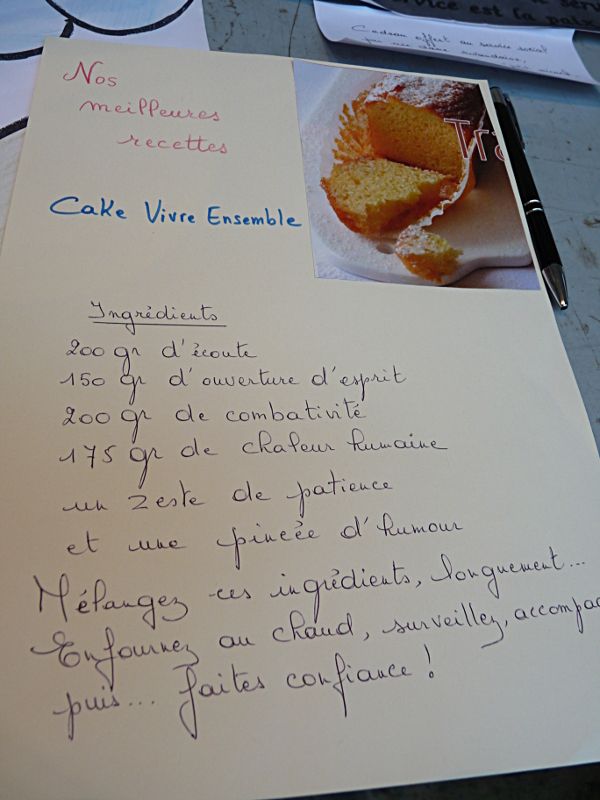 service est la paix
Cadeau offert au service social
Nos
meilleures
recettes
Tra
Cake Vivre Ensemble
Ingrédients
200 gr d'écoute
150 gr d'ouverture d'esprit
200 gr de combativité
175 gr de chaleur humaine
un zeste de patience
et une pincée d'humour
Mélangez ces ingrédients, longuement...
Enfournez au chaud, surveillez, accompa
puis... faites confiance !